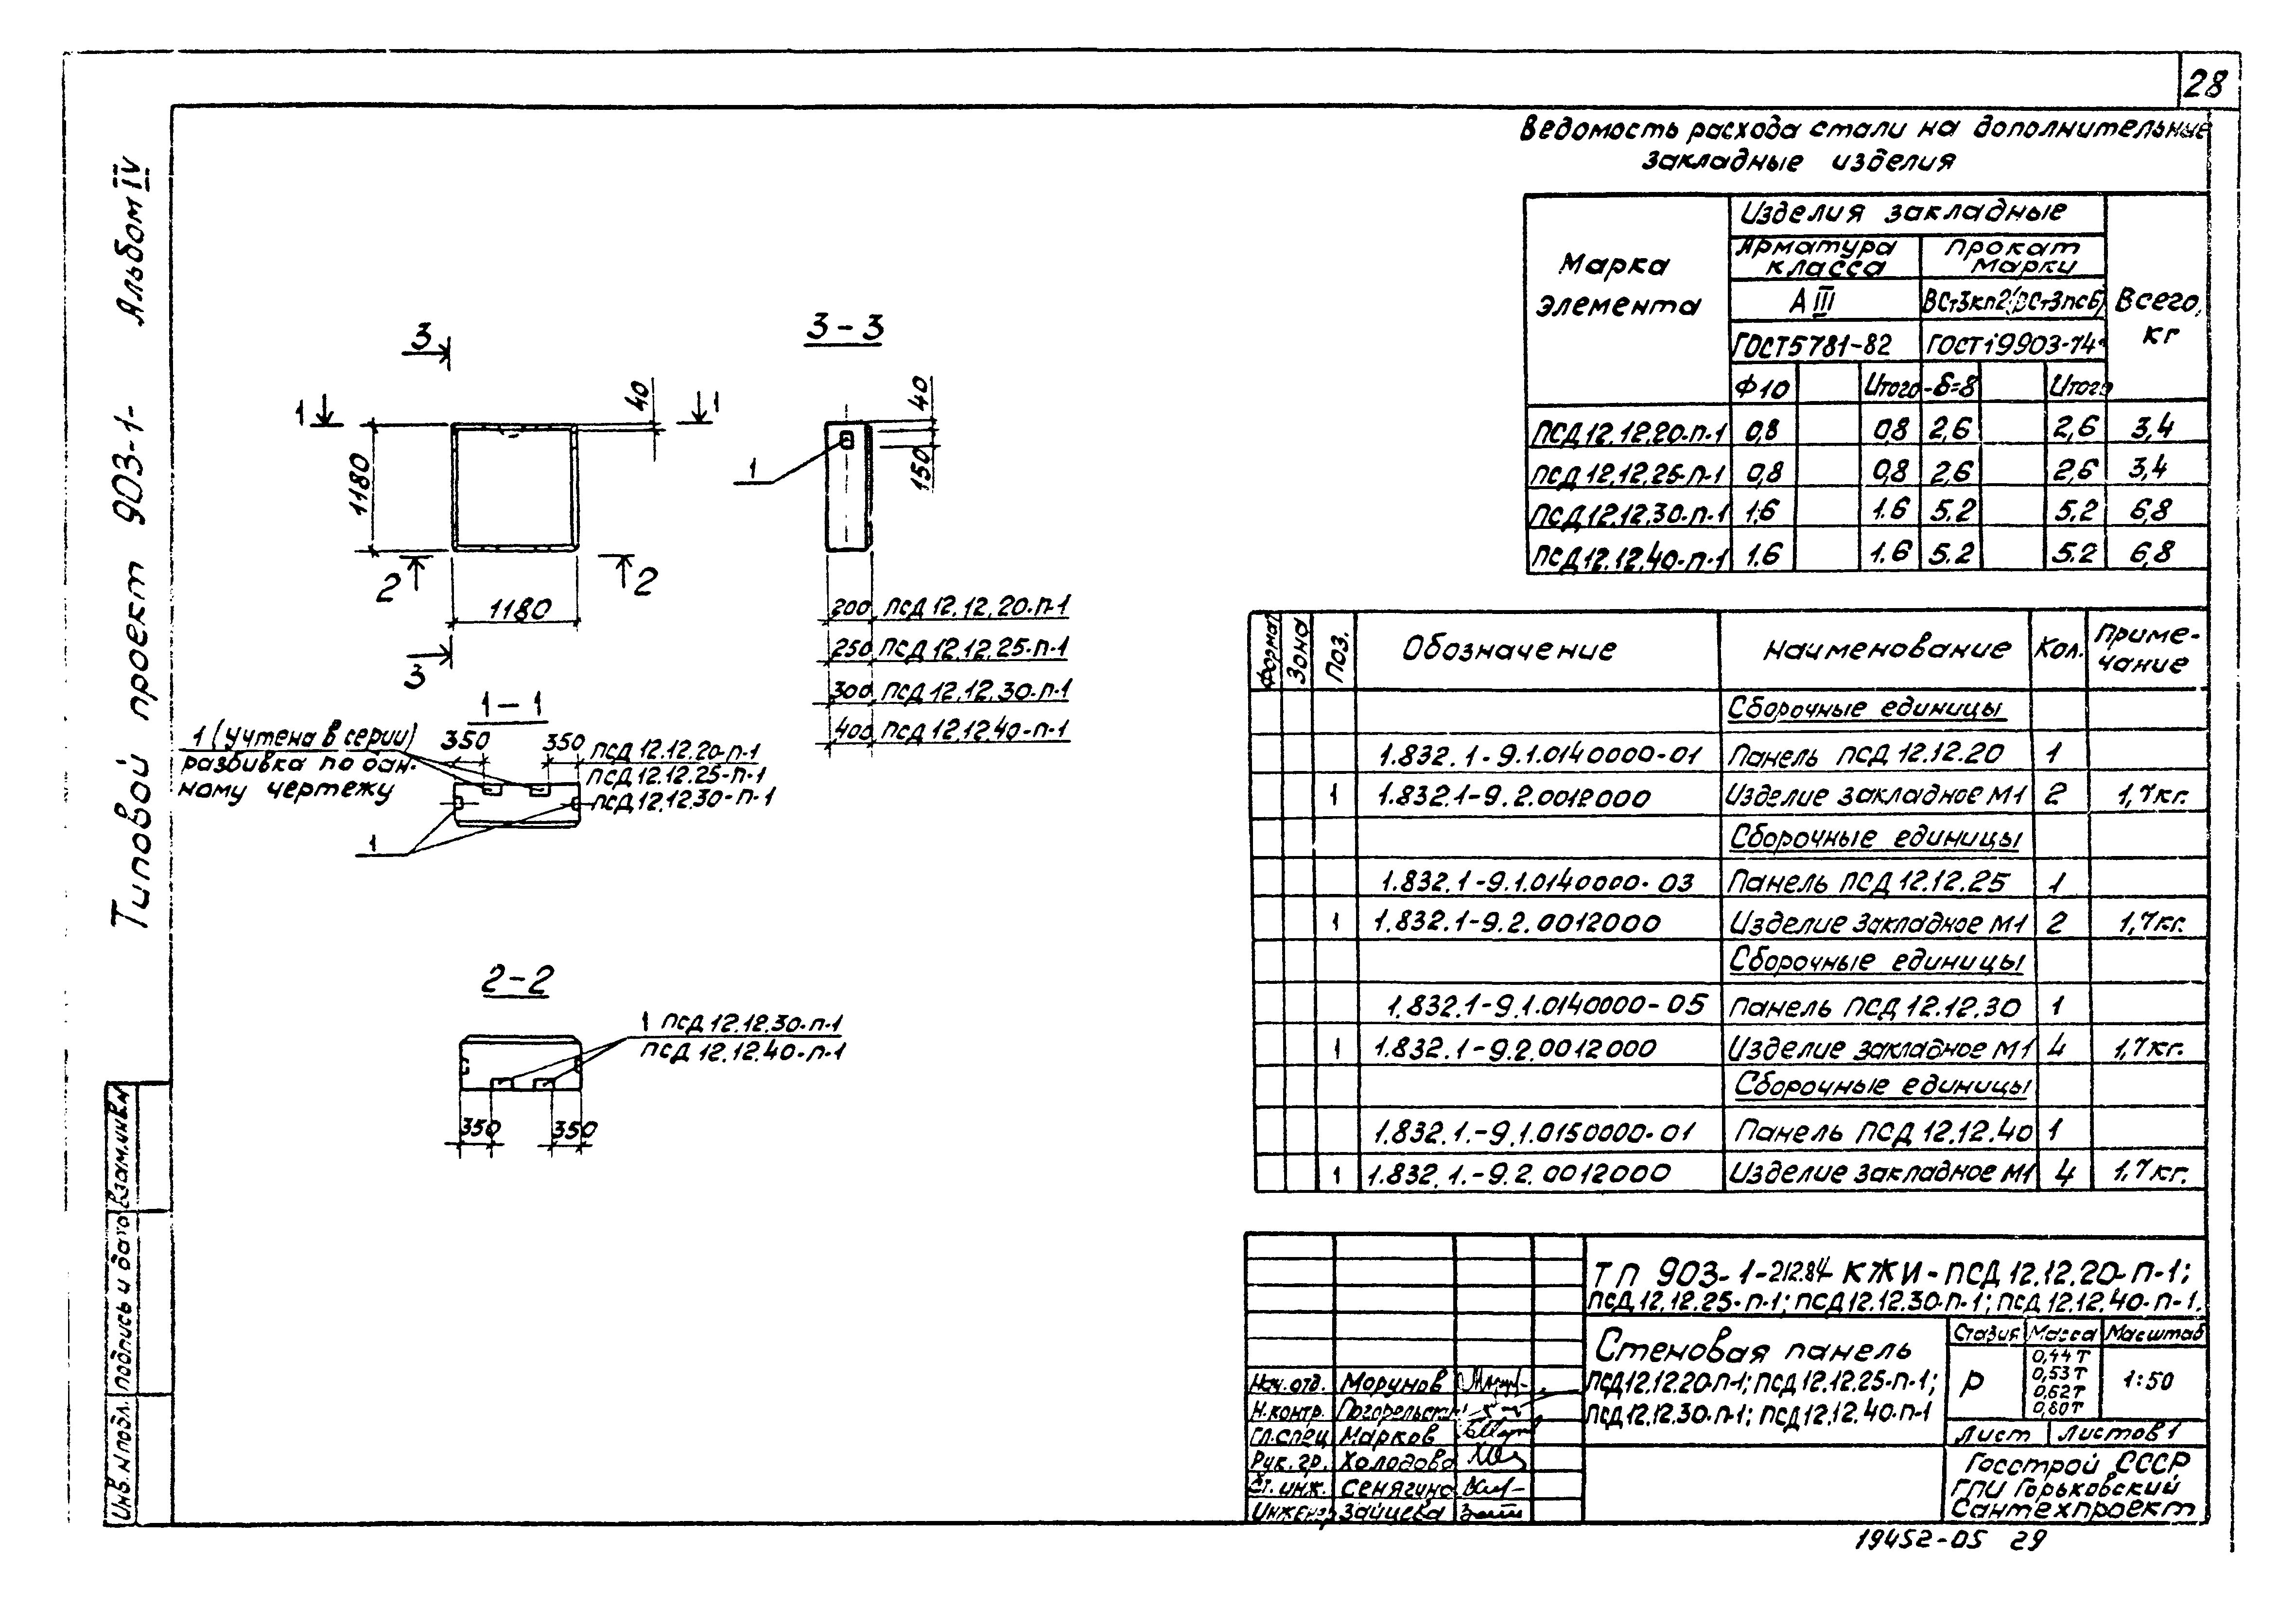 28
Ведомость расхода стали на дополнительные
закладные изделия
Марка элемента
Изделия закладные
Всего, кг
Арматура класса
Прокат марки
А III
ВСт3кп2(ВСт3пс6)
ГОСТ5781-82
ГОСТ19903-74*
Ф10 Итого -δ=8 Итого
ПСД12.12.20-п-1 0,8 0,8 2,6 2,6 3,4
ПСД12.12.25-п-1 0,8 0,8 2,6 2,6 3,4
ПСД12.12.30-п-1 1,6 1.6 5.2 5.2 6,8
ПСД12.12.40-п-1 1.6 1.6 5.2 5.2 6,8
Формат Зона Поз. Обозначение Наименование Кол. Приме-
чание
Сборочные единицы
1.832.1-9.1.0140000-01 Панель ПСД 12.12.20 1
1 1.832.1-9.2.0012000 Изделие закладное М1 2 1,7кг.
Сборочные единицы
1.832.1-9.1.0140000-03 Панель ПСД 12.12.25 1
1 1.832.1-9.2.0012000 Изделие закладное М1 2 1,7кг.
Сборочные единицы
1.832.1-9.1.0140000-05 Панель ПСД 12.12.30 1
1 1.832.1-9.2.0012000 Изделие закладное М1 4 1,7кг.
Сборочные единицы
1.832.1.-9.1.0150000-01 Панель ПСД 12.12.40 1
1 1.832.1.-9.2.0012000 Изделие закладное М1 4 1,7кг.
3
1
1
40
1180
2
2
1180
3
3-3
40
150
1
200 ПСД 12.12.20-п-1
250 ПСД 12.12.25-п-1
300 ПСД 12.12.30-п-1
400 ПСД 12.12.40-п-1
1-1
1 (учтена в серии)
разбивка по дан-
ному чертежу
350
350
ПСД 12.12.20-п-1
ПСД 12.12.25-п-1
ПСД 12.12.30-п-1
1
2-2
1 ПСД 12.12.30-п-1
ПСД 12.12.40-п-1
350
350
ТП 903-1-212.84 КЖИ-ПСД 12.12.20-п-1;
ПСД12.12.25-п-1; ПСД12.12.30-п-1; ПСД12.12.40-п-1.
Стеновая панель
ПСД12.12.20-п-1; ПСД 12.12.25-п-1;
ПСД12.12.30-п-1; ПСД12.12.40-п-1
Стадия Масса Масштаб
Р
0,44т
0,53т
0,62т
0,80т
1:50
Лист Листов 1
Госстрой СССР
ГПИ Горьковский
Сантехпроект
Нач.отд. Морунов
Н.контр.
Гл.спец Марков
Рук.гр. Холодова
Ст.инж. Сенягина
Инженер Зайцева
19452-05 29
Типовой проект 903-1- Альбом IV
Инв.N подл. Подпись и дата Взам.инв.N